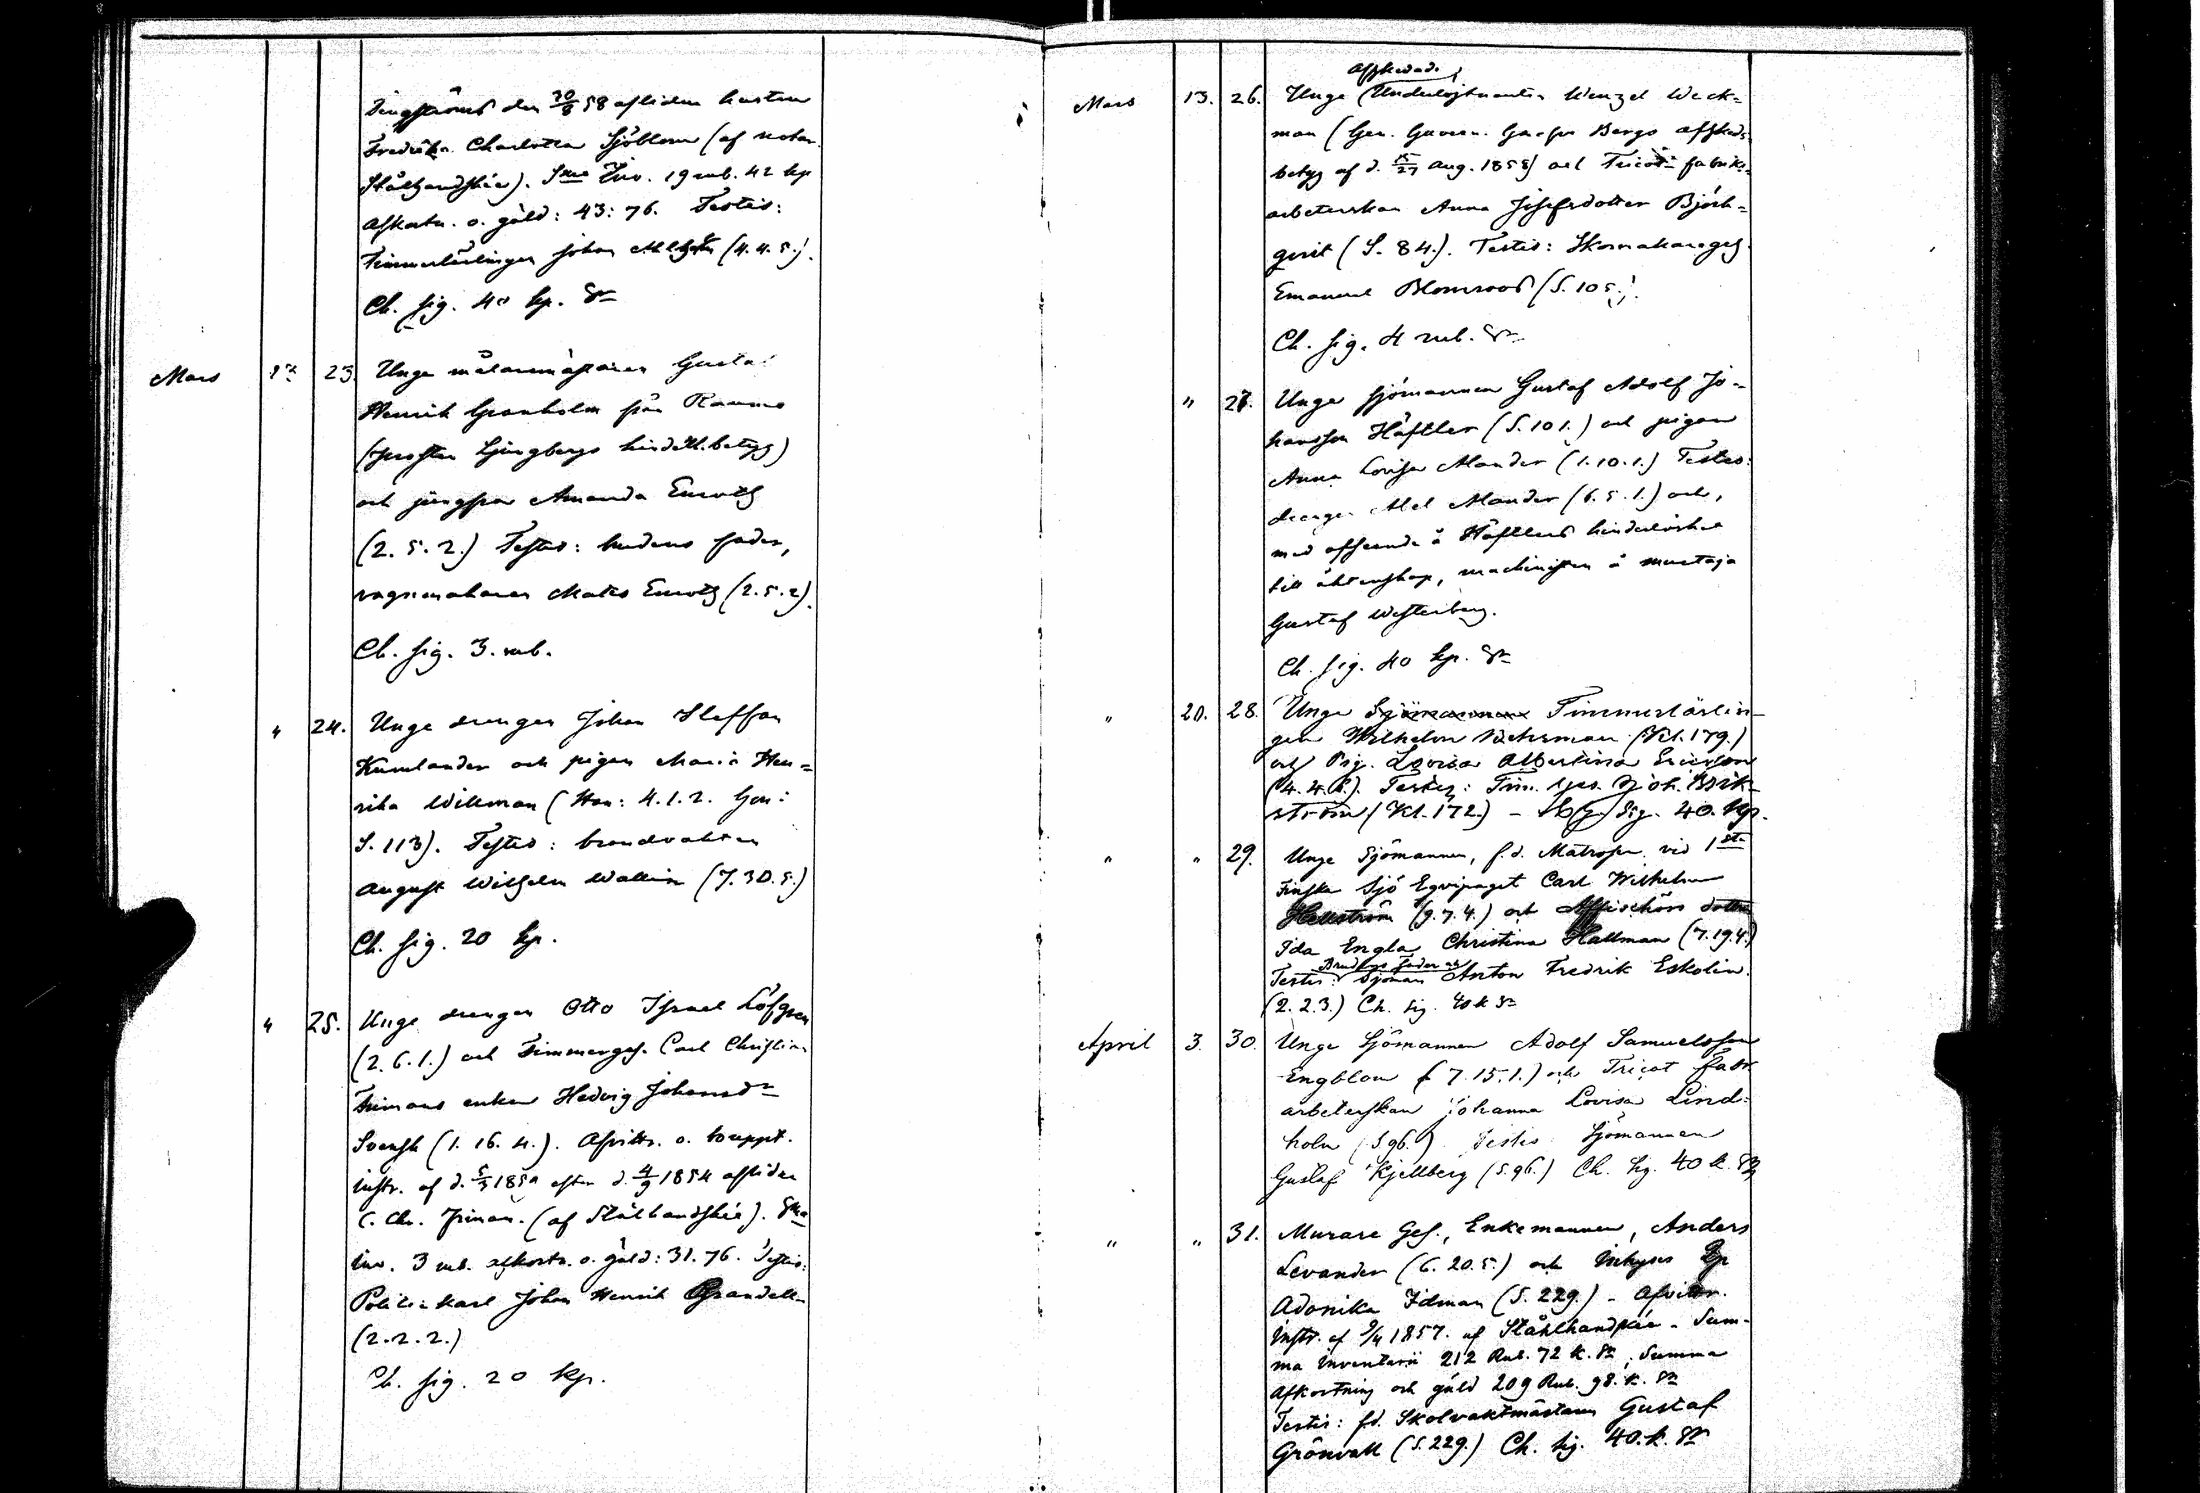 den 30/8 58 aflidne hustru
Fredrika Charlotta Sjöblom (af notar.
Stålhandské). Sma Inv. 19 rub. 42 kp
Afkortn. o. gäld: 43: 76. Testis:
Timmerlärlingen Johan (4.4.5.)
Ch. sig. 40 kp. Sr
Mars 23. Unge målaremästaren Gustaf
Henrik Granholm från Raumo
(prosten Ljungbergs hinderl.betyg)
och jungfru Amanda Euroth
(2.5.2.) Testes: brudens fader,
vagnmakaren Matts Euroth (2.5.2).
Ch. sig. 3. rub.
" 24. Unge drengen Johan Steffan
Kumlander och pigan Maria Hen=
rika Willman (Han: 4.1.2. hon:
S. 113). Testes: brandvakten
August Wilhelm Wallin (7.30.5.)
Ch. sig. 20 kp.
" 25. Unge drengen Otto Israel Löfgren
(2.6.1.) och Timmerges. Carl Christian
enka Hedvig Johansdr
Svensk (1.16.4.). Afvittr. o. bouppt.
instr. af d. efter d. 4/9 1854 aflidne
C. Chr. (af Stålhandské). Sma
inv. 3 rub. afkortn. o. gäld: 31.76. Testis:
Politiekarl Johan Henrik Grandell
(2.2.2.)
Ch. sig. 20 kp.
Afskedad.
Mars 13. 26. Unge Underlöjtnanten Wenzel Weck=
man (Gen. Guvern. Bergs afskeds
betyg af d. 15/27 Aug. 1858) och Tricot fabriks=
arbeterskan Anna Josefsdotter Björk=
qvist (S. 84.). Testis: Skomakareges.
Emanuel Blomroos (S. 105.).
Ch. sig. 4 rub. Sr
" 27. Unge sjömannen Gustaf Adolf Jo=
hansson Häftler (S. 101.) och pigan
Anna Lovisa Alander (1.10.1.) Testes:
drengen Abel Alander (6.5.1.) och,
med afseende å Häftlers hinderlöshet
till äktenskap, machinisten å mustaja
Gustaf Westerberg.
Ch. sig. 40 kp. Sr
" 20. 28. Unge Sjömannen Timmerlärlin-
gen Wilhelm (Kl. 179.)
och Pig. Lovisa Albertina Ericsson
(4.4.6.). Testes: Tim. Ges. Joh. Brik-
ström (Kl. 172.) – Sig. 40. Kp.
" " 29. Unge Sjömannen, f.d. Matrosen vid 1sta
Finska Sjö Eqvipaget Carl Wilhelm
Hellström (9.7.4.) och dotter
Ida Engla Christina Hallman (7.19.4.)
Brudens fader och
Testis: Sjöman Anton Fredrik Eskolin.
(2.2.3.) Ch. sig. 40 k Sr
April 3. 30. Unge Sjömannen Adolf Samuelsson
Engblom (7.15.1.) och Tricot Fabr
arbeterskan Johanna Lovisa Lind=
holm (S96.) Testis Sjömannen
Gustaf Kjellberg (S.96.) Ch. Sig. 40 k. Sr
" " 31. Murare Ges., Enkemannen, Anders
Levander (6.20.5.) och Inhyses
Adonika Idman (S. 229.) – Afvittr.
Instr. af 9/4 1857. af Stålhandské – Sum-
ma Inventarii 212 Rub. 72 k. Sr, Summa
Afkortning och gäld 209 Rub. 98. k. Sr
Testis: fd. Skolvaktmästaren Gustaf
Grönvall (S.229.) Ch. Sig. 40. k. Sr